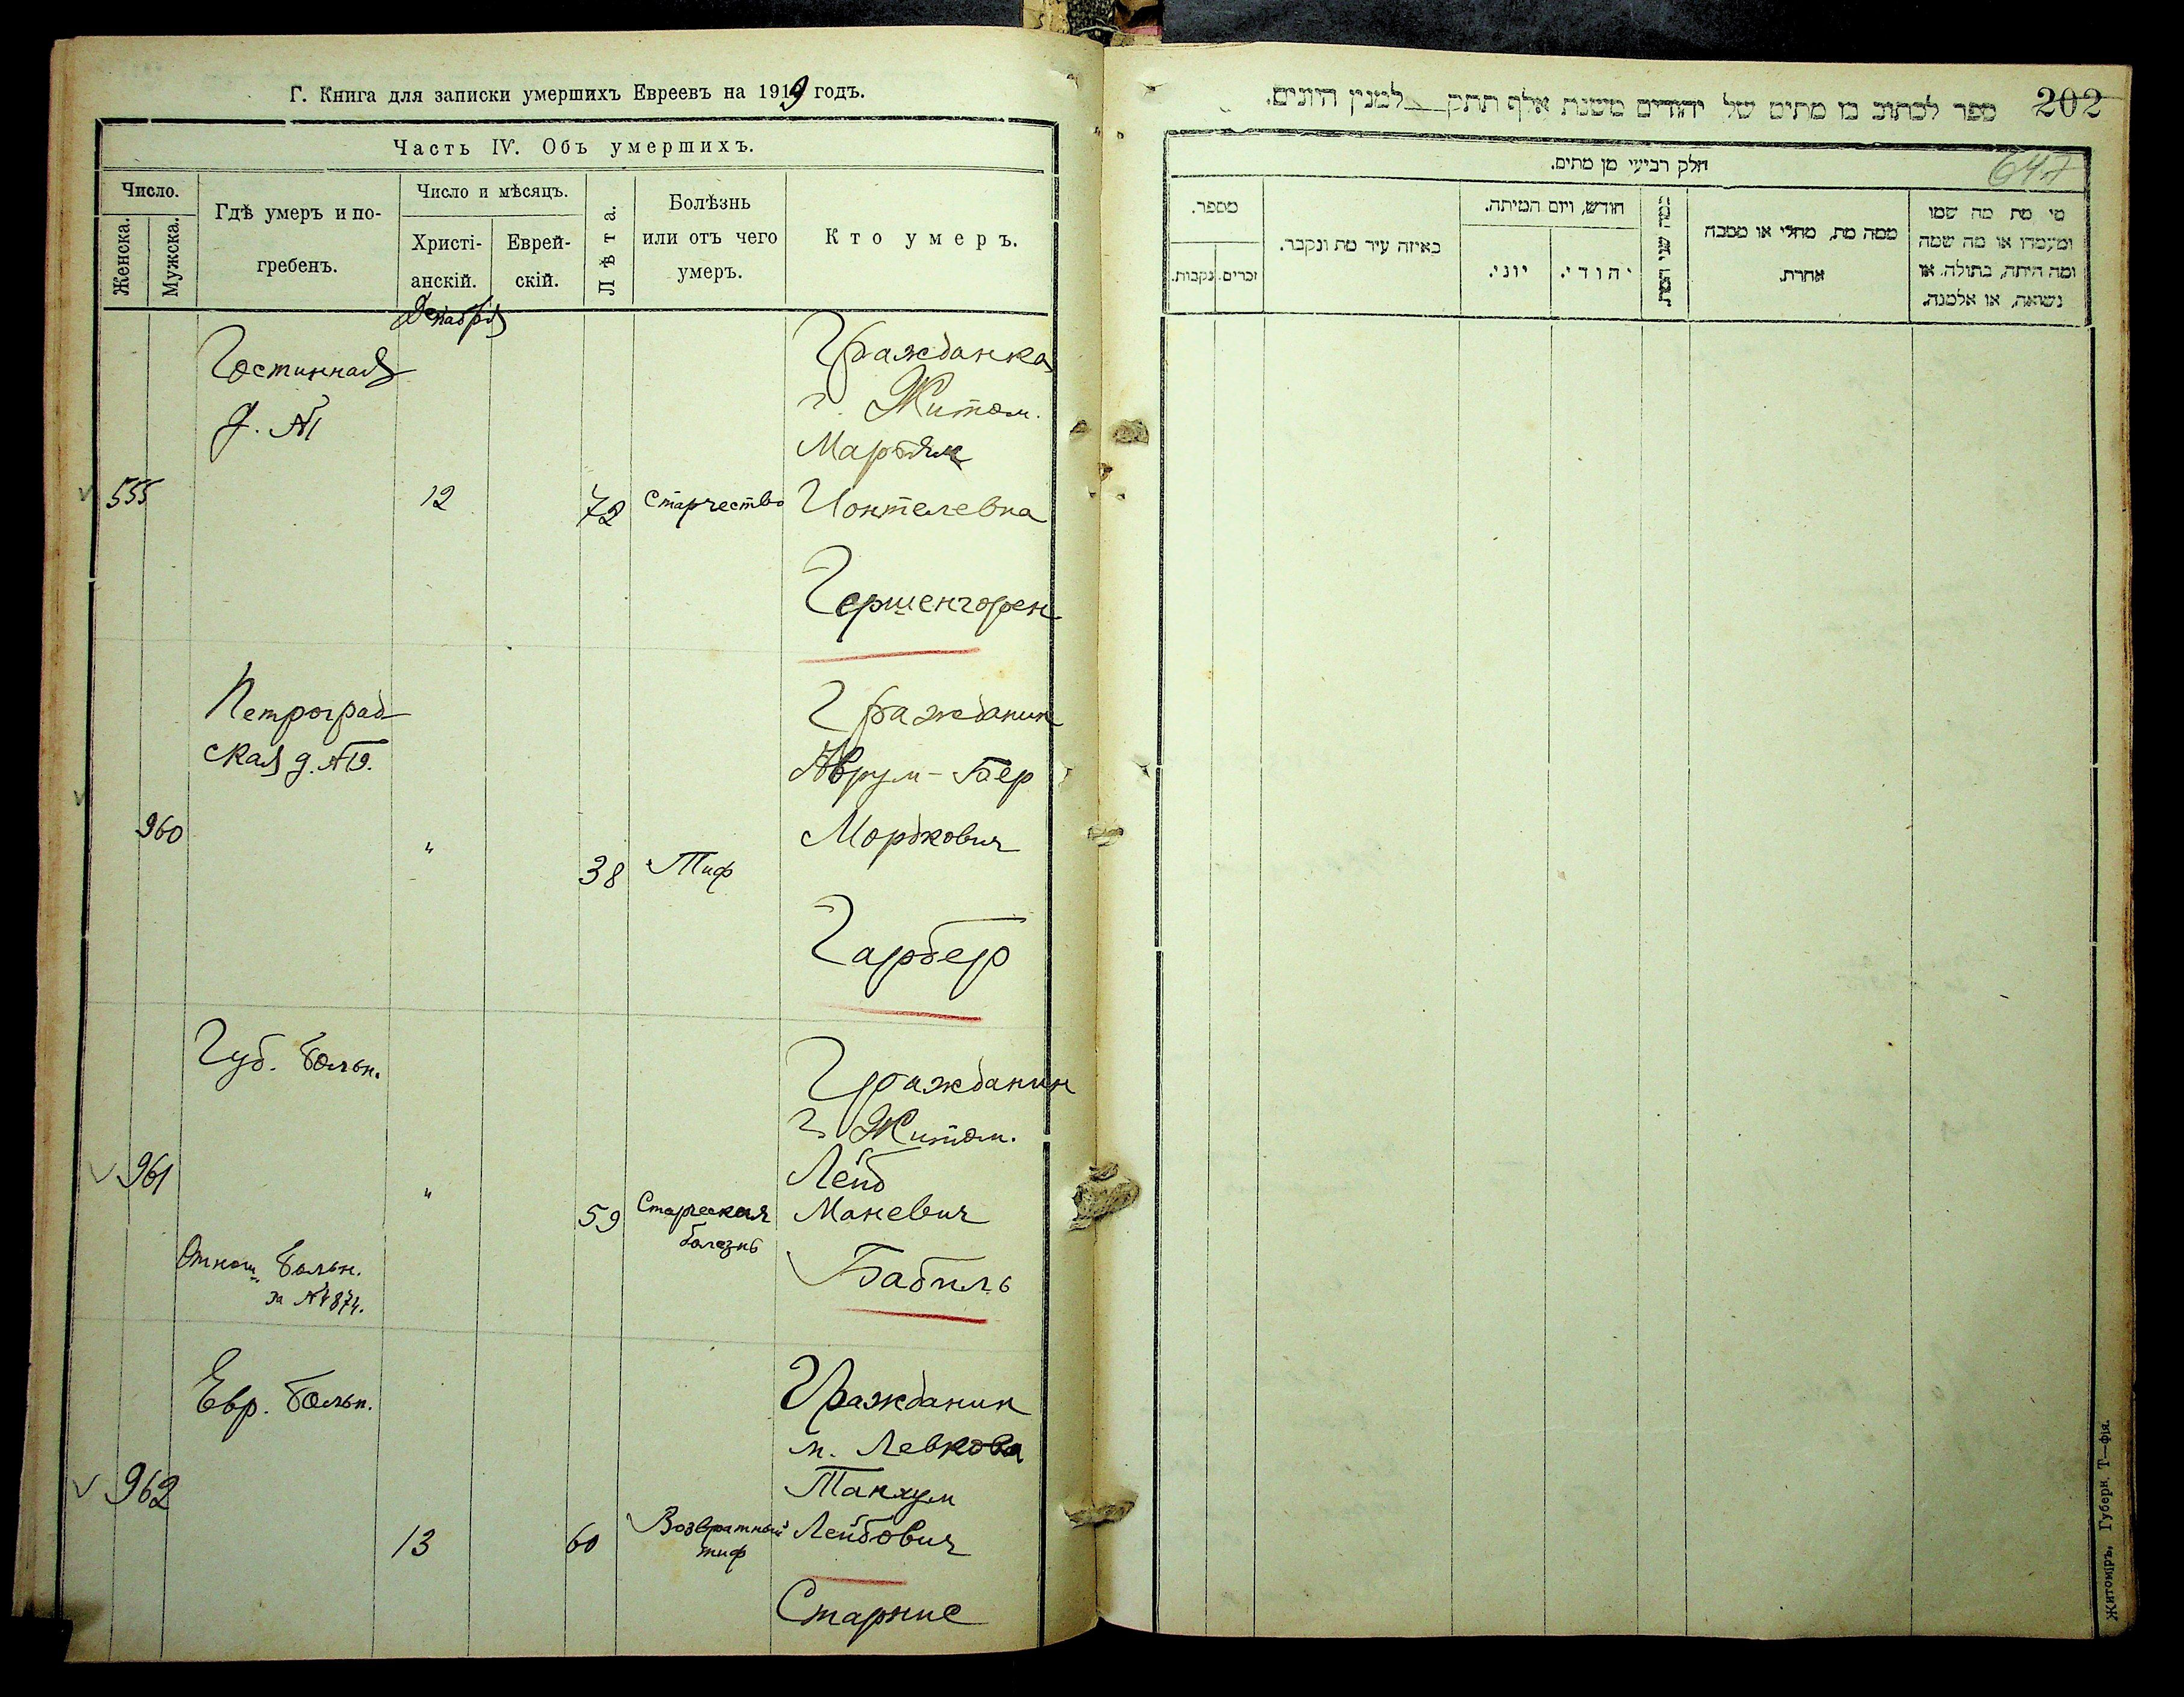 Г. Книга для записки умершихъ Евреевъ на 1919 годъ.
Часть IV. Объ умершихъ.
Число.
Женска.
Мужска.
Гдѣ умеръ и по-
гребенъ.
Число и мѣсяцъ.
Христі-
анскій.
Еврей-
скій.
Лѣта.
Болѣзнь
или отъ чего
умеръ.
Кто умеръ.
Декабря
Гостинная
д. №1
555
12
72
Старчество
Гражданка
г. Житом.
Марьям
Ионтелевна
Гершенгорен
Петроград
ская д. №19.
960
"
38
Тиф
Гражданин
Аврум-Бер
Мордкович
Гарбер
Губ. больн.
961
Отнош. больн.
за №4874.
"
59
Старческая
болезнь
Гражданин
г. Житом.
Лейб
Маневич
Бабиль
Евр. больн.
962
13
60
Возвратный
тиф
Гражданин
м. Левкова
Танхум
Лейбович
Старнис
ספר לכתוב בו מתים של יהודים משנת אלף תתק למנין היונים.
202
647
חלק רביעי מן מתים.
מספר.
זכרים.
נקבות.
באיזה עיר מת ונקבר.
חודש, ויום המיתה.
יוני.
יהודי.
כמה שני המת
ממה מת, מחלי או מסבה
אחרת.
מי מת מה שמו
ומעמדו או מה שמה
ומה היתה, בתולה או
נשואה, או אלמנה.
Житоміръ, Губерн. Т—фія.